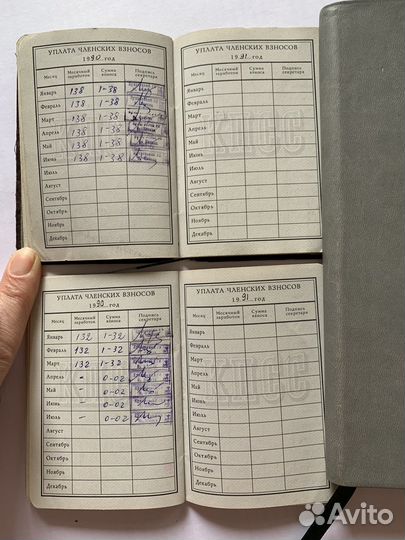 УПЛАТА ЧЛЕНСКИХ ВЗНОСОВ
1990 год
Месяц Месячный заработок Сумма взноса Подпись секретаря
Январь 138 1-38
Февраль 138 1-38
Март 138 1-38
Апрель 138 1-38
Май 138 1-38
Июнь 138 1-38
Июль
Август
Сентябрь
Октябрь
Ноябрь
Декабрь
УПЛАТА ЧЛЕНСКИХ ВЗНОСОВ
1991 год
Месяц Месячный заработок Сумма взноса Подпись секретаря
Январь
Февраль
Март
Апрель
Май
Июнь
Июль
Август
Сентябрь
Октябрь
Ноябрь
Декабрь
КПСС
УПЛАТА ЧЛЕНСКИХ ВЗНОСОВ
1990 год
Месяц Месячный заработок Сумма взноса Подпись секретаря
Январь 132 1-32
Февраль 132 1-32
Март 132 1-32
Апрель - 0-02
Май - 0-02
Июнь - 0-02
Июль - 0-02
Август
Сентябрь
Октябрь
Ноябрь
Декабрь
УПЛАТА ЧЛЕНСКИХ ВЗНОСОВ
1991 год
Месяц Месячный заработок Сумма взноса Подпись секретаря
Январь
Февраль
Март
Апрель
Май
Июнь
Июль
Август
Сентябрь
Октябрь
Ноябрь
Декабрь
КПСС
Avito